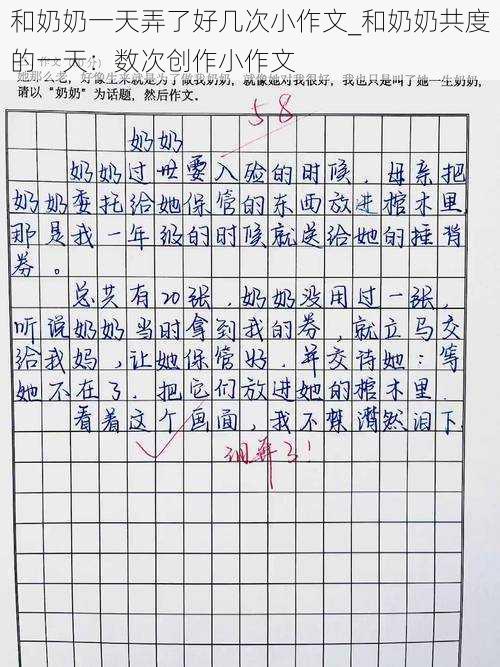 和奶奶一天弄了好几次小作文_和奶奶共度
的一天：数次创作小作文
她那么老，好像生来就是为了做我奶奶，就像她对我很好，我也只是叫了她一生奶奶，
请以“奶奶”为话题，然后作文。
58
奶奶
奶奶过世要入殓的时候，母亲把
奶奶委托给她保管的东西放进棺木里
那是我一年级的时候就送给她的捶背
券。
总共有20张，奶奶没用过一张，
听说奶奶当时拿到我的券，就立马交
给我妈，让她保管好，并交待她：等
她不在了，把它们放进她的棺木里.
看着这个画面，我不禁潸然泪下
泪奔了！